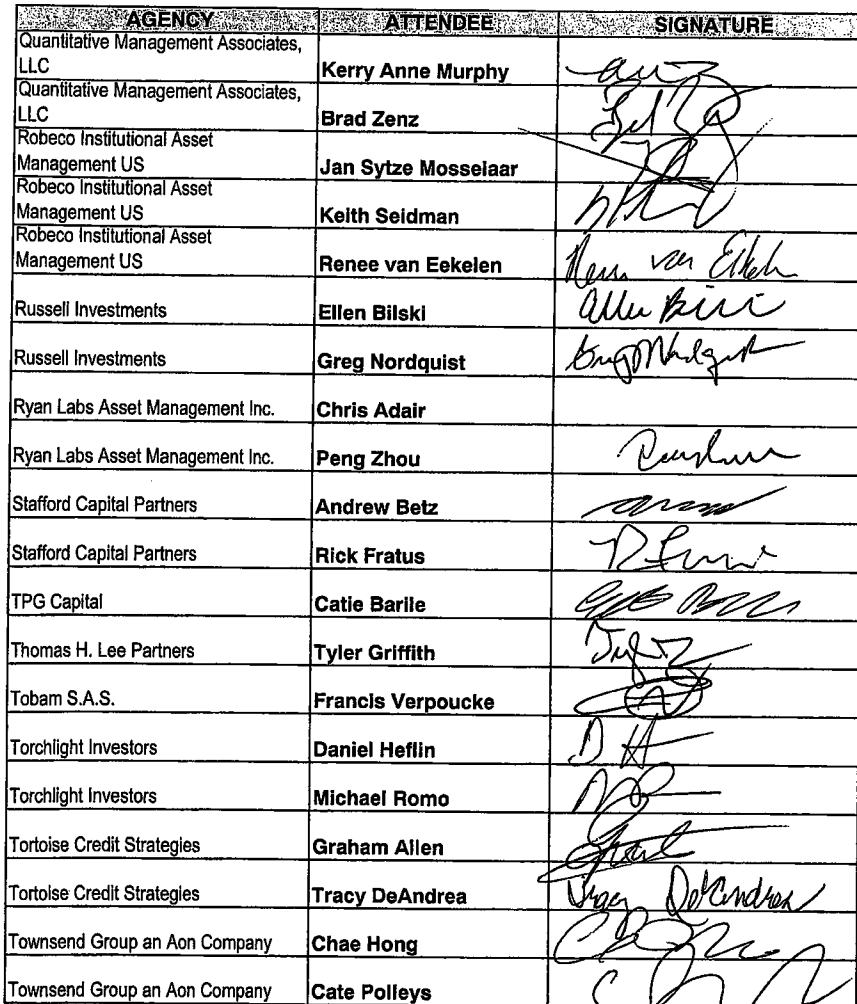 AGENCY ATTENDEE SIGNATURE
Quantitative Management Associates,
LLC Kerry Anne Murphy
Quantitative Management Associates,
LLC Brad Zenz
Robeco Institutional Asset
Management US Jan Sytze Mosselaar
Robeco Institutional Asset
Management US Keith Seidman
Robeco Institutional Asset
Management US Renee van Eekelen van
Russell Investments Ellen Bilski
Russell Investments Greg Nordquist
Ryan Labs Asset Management Inc. Chris Adair
Ryan Labs Asset Management Inc. Peng Zhou
Stafford Capital Partners Andrew Betz
Stafford Capital Partners Rick Fratus
TPG Capital Catie Barile
Thomas H. Lee Partners Tyler Griffith
Tobam S.A.S. Francis Verpoucke
Torchlight Investors Daniel Heflin
Torchlight Investors Michael Romo
Tortoise Credit Strategies Graham Allen
Tortoise Credit Strategies Tracy DeAndrea Tracy DeAndrea
Townsend Group an Aon Company Chae Hong
Townsend Group an Aon Company Cate Polleys